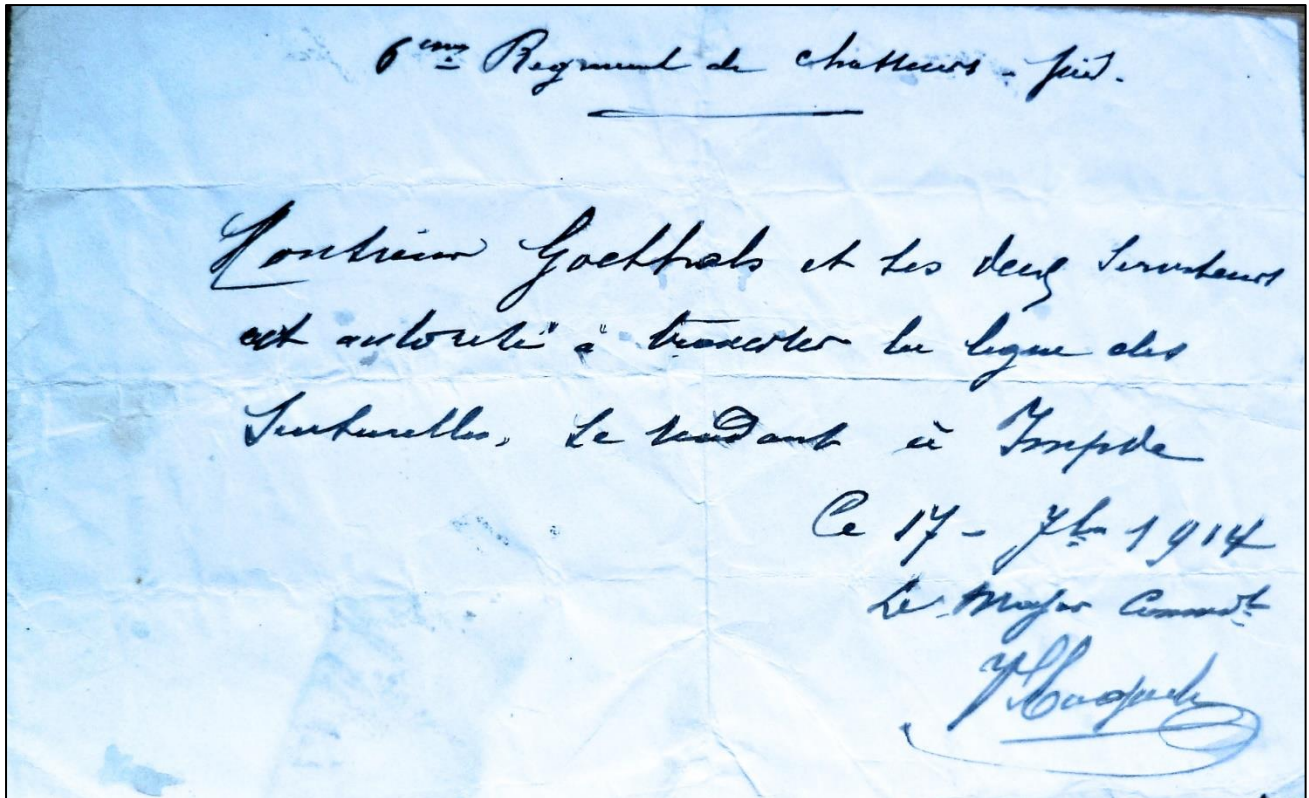 6ème Regiment de chasseurs - pied.
Monsieur Goethals et ses deux serviteurs
est autorisé à traverser la ligne des
Sentinelles, se rendant à Impde
Ce 17 - 7bre 1914
Le Major Commdt